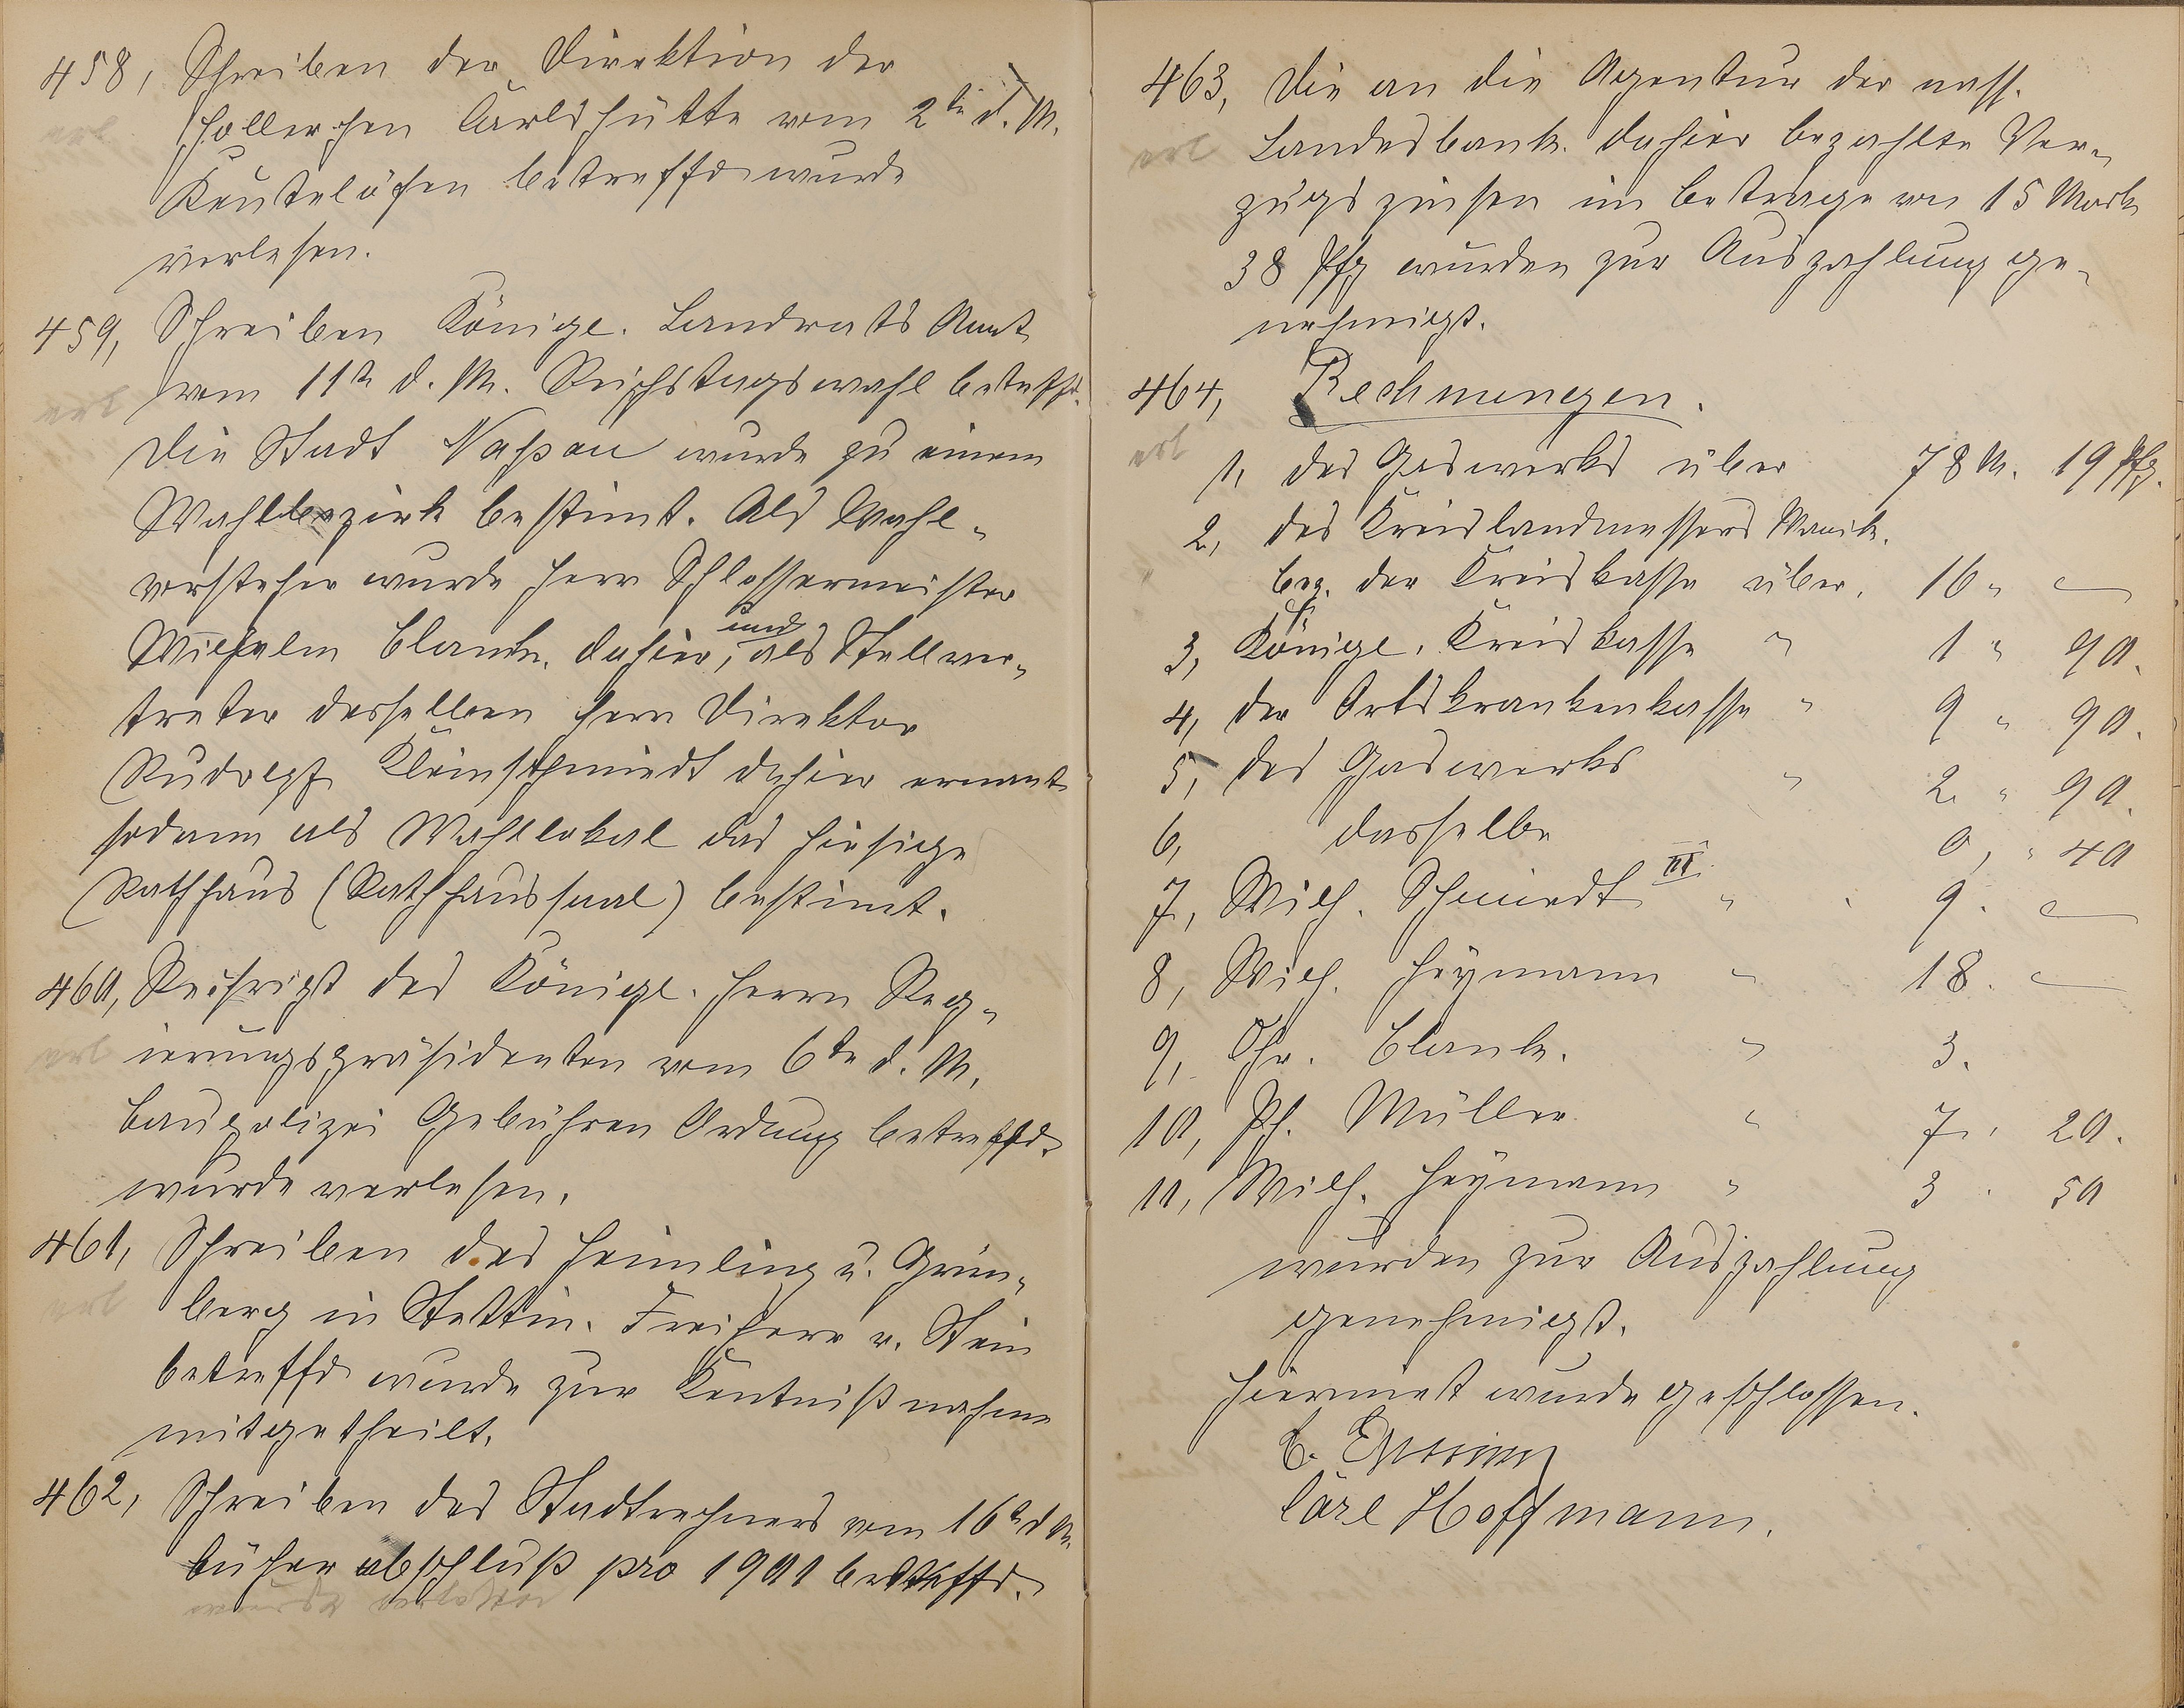 458, Schreiben der Direktion der
erl
Hollerschen Carlshütte vom 2ten d. M.
betreffd wurde
verlesen.
459, Schreiben Königl. Landrats Amt
erl
vom 11ten d. M. Reichstagswahl betreffd.
Die Stadt Nassau wurde zu einem
Wahlbezirk bestimt. Als Wahl-
vorsteher wurde Herr Schlossermeister
Wilhelm Blank dahier, und als Stellver-
treter desselben Herr Direktor
Rudolph Kleinschmidt dahier ernant
sodann als Wahllokal das hiesige
Rathhaus (Rathhaussaal) bestimt.
460, des Königl. Herrn Reg-
erl
ierungspräsidenten vom 6ten d. M.
Baupolizei Gebühren Ordnung betreffd.
wurde verlesen.
461, Schreiben des Heimling u. Grün-
erl
berg in Stettin. Freiherr v. Stein
betreffd wurde zur Kentnißnahme
mitgetheilt.
462, Schreiben des Stadtrechners vom 16ten d M.
Bücherabschluß pro 1901 betreffd.
wurde verlesen
463, Die an die Agentur der nass.
erl
Landesbank dahier bezahlte Ver-
zugszinsen im Betrage von 15 Mark
38 Pfg wurden zur Auszahlung ge-
nehmigt.
464, Rechnungen.
erl
1, des Gaswerks über 78 M. 19 Pfg.
2, des Kreislandmessers
bez. der Kreiskasse über 16 " —
3, Königl. Kreiskasse " 1 " 90.
4, der Ortskrankenkasse " 9 " 90.
5, des Gaswerks " 2 " 90.
6, dasselbe 0, " 40
7, Wilh. Schmidt III. " 9. —
8, Wilh. Heymann " 18. —
9, Chr. Blank. " 3.
10, Ph. Müller " 7, 20.
11, Wilh. Heymann " 3. 50
wurden zur Auszahlung
genehmigt.
Hiermit wurde geschlossen.
Carl Hoffmann.